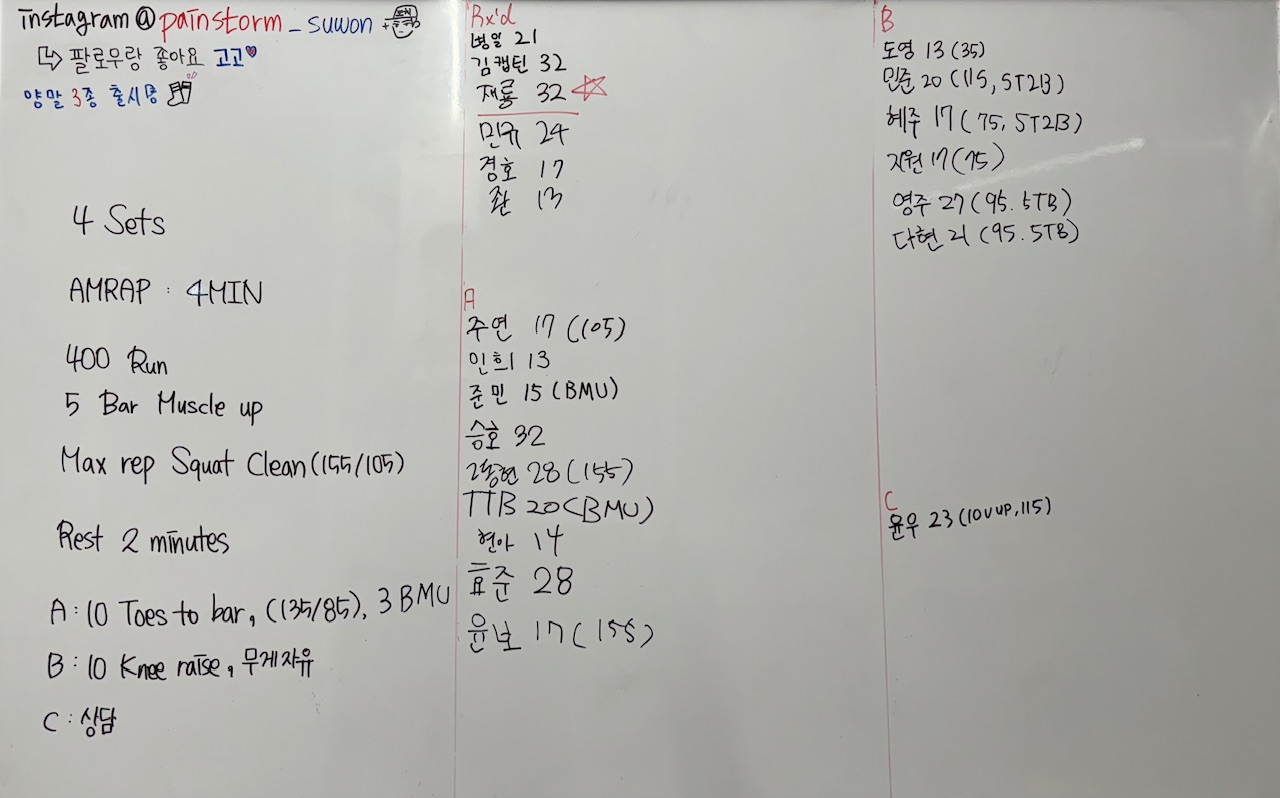 instagram@painstorm_suwon
팔로우랑 좋아요 고고
양말 3종 출시중
4 Sets
AMRAP : 4MIN
400 Run
5 Bar Muscle up
Max rep Squat Clean(155/105)
Rest 2 minutes
A:10 Toes to bar, (135/85), 3 BMU
B:10 Knee raise, 무게자유
C:상담
Rx'd
병일 21
김캡틴 32
재룡 32
민규 24
경호 17
13
A
주연 17 (105)
인희 13
준민 15 (BMU)
승호 32
동현 28 (155)
TTB 20 (BMU)
현아 14
효준 28
윤보 17 (155)
B
도영 13 (35)
민준 20 (115, 5T2B)
혜주 17 (75, 5T2B)
지원 17 (75)
영주 27 (95. 5TB)
다현 21 (95. 5TB)
C
윤우 23 (10vup, 115)